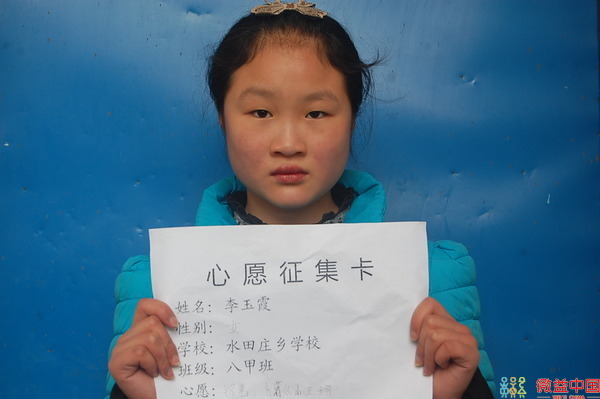 心愿征集卡
姓名：李玉霞
性别：女
学校：水田庄乡学校
班级：八甲班
心愿：
微益中国